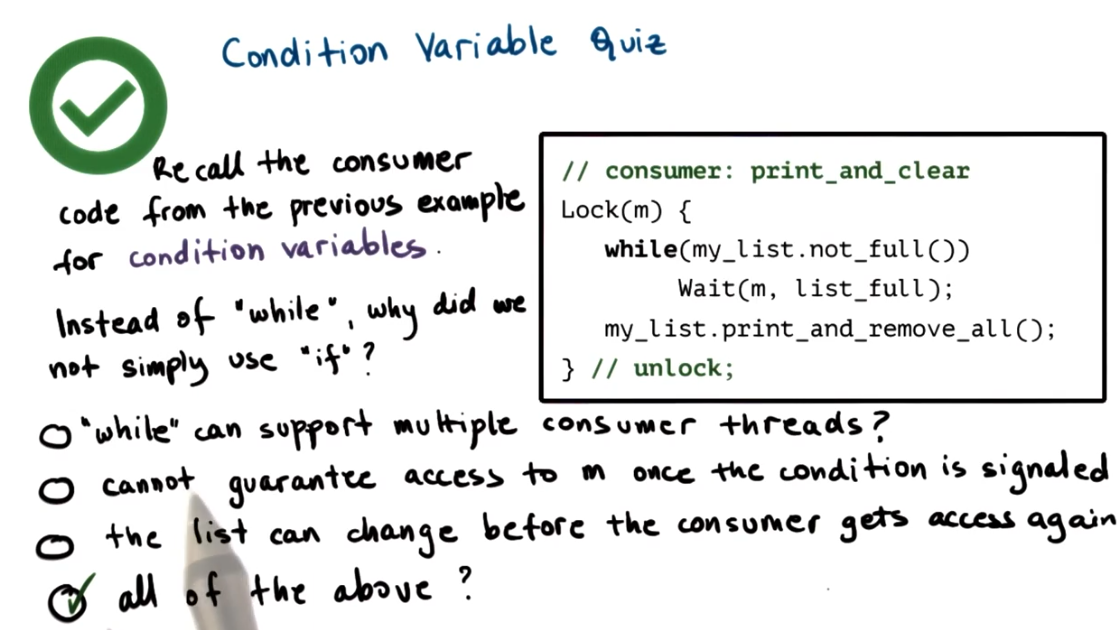 Condition Variable Quiz
Recall the consumer
code from the previous example
for condition variables.
Instead of "while", why did we
not simply use "if"?
// consumer: print_and_clear
Lock(m) {
while(my_list.not_full())
Wait(m, list_full);
my_list.print_and_remove_all();
} // unlock;
"while" can support multiple consumer threads?
cannot guarantee access to m once the condition is signaled
the list can change before the consumer gets access again
all of the above?